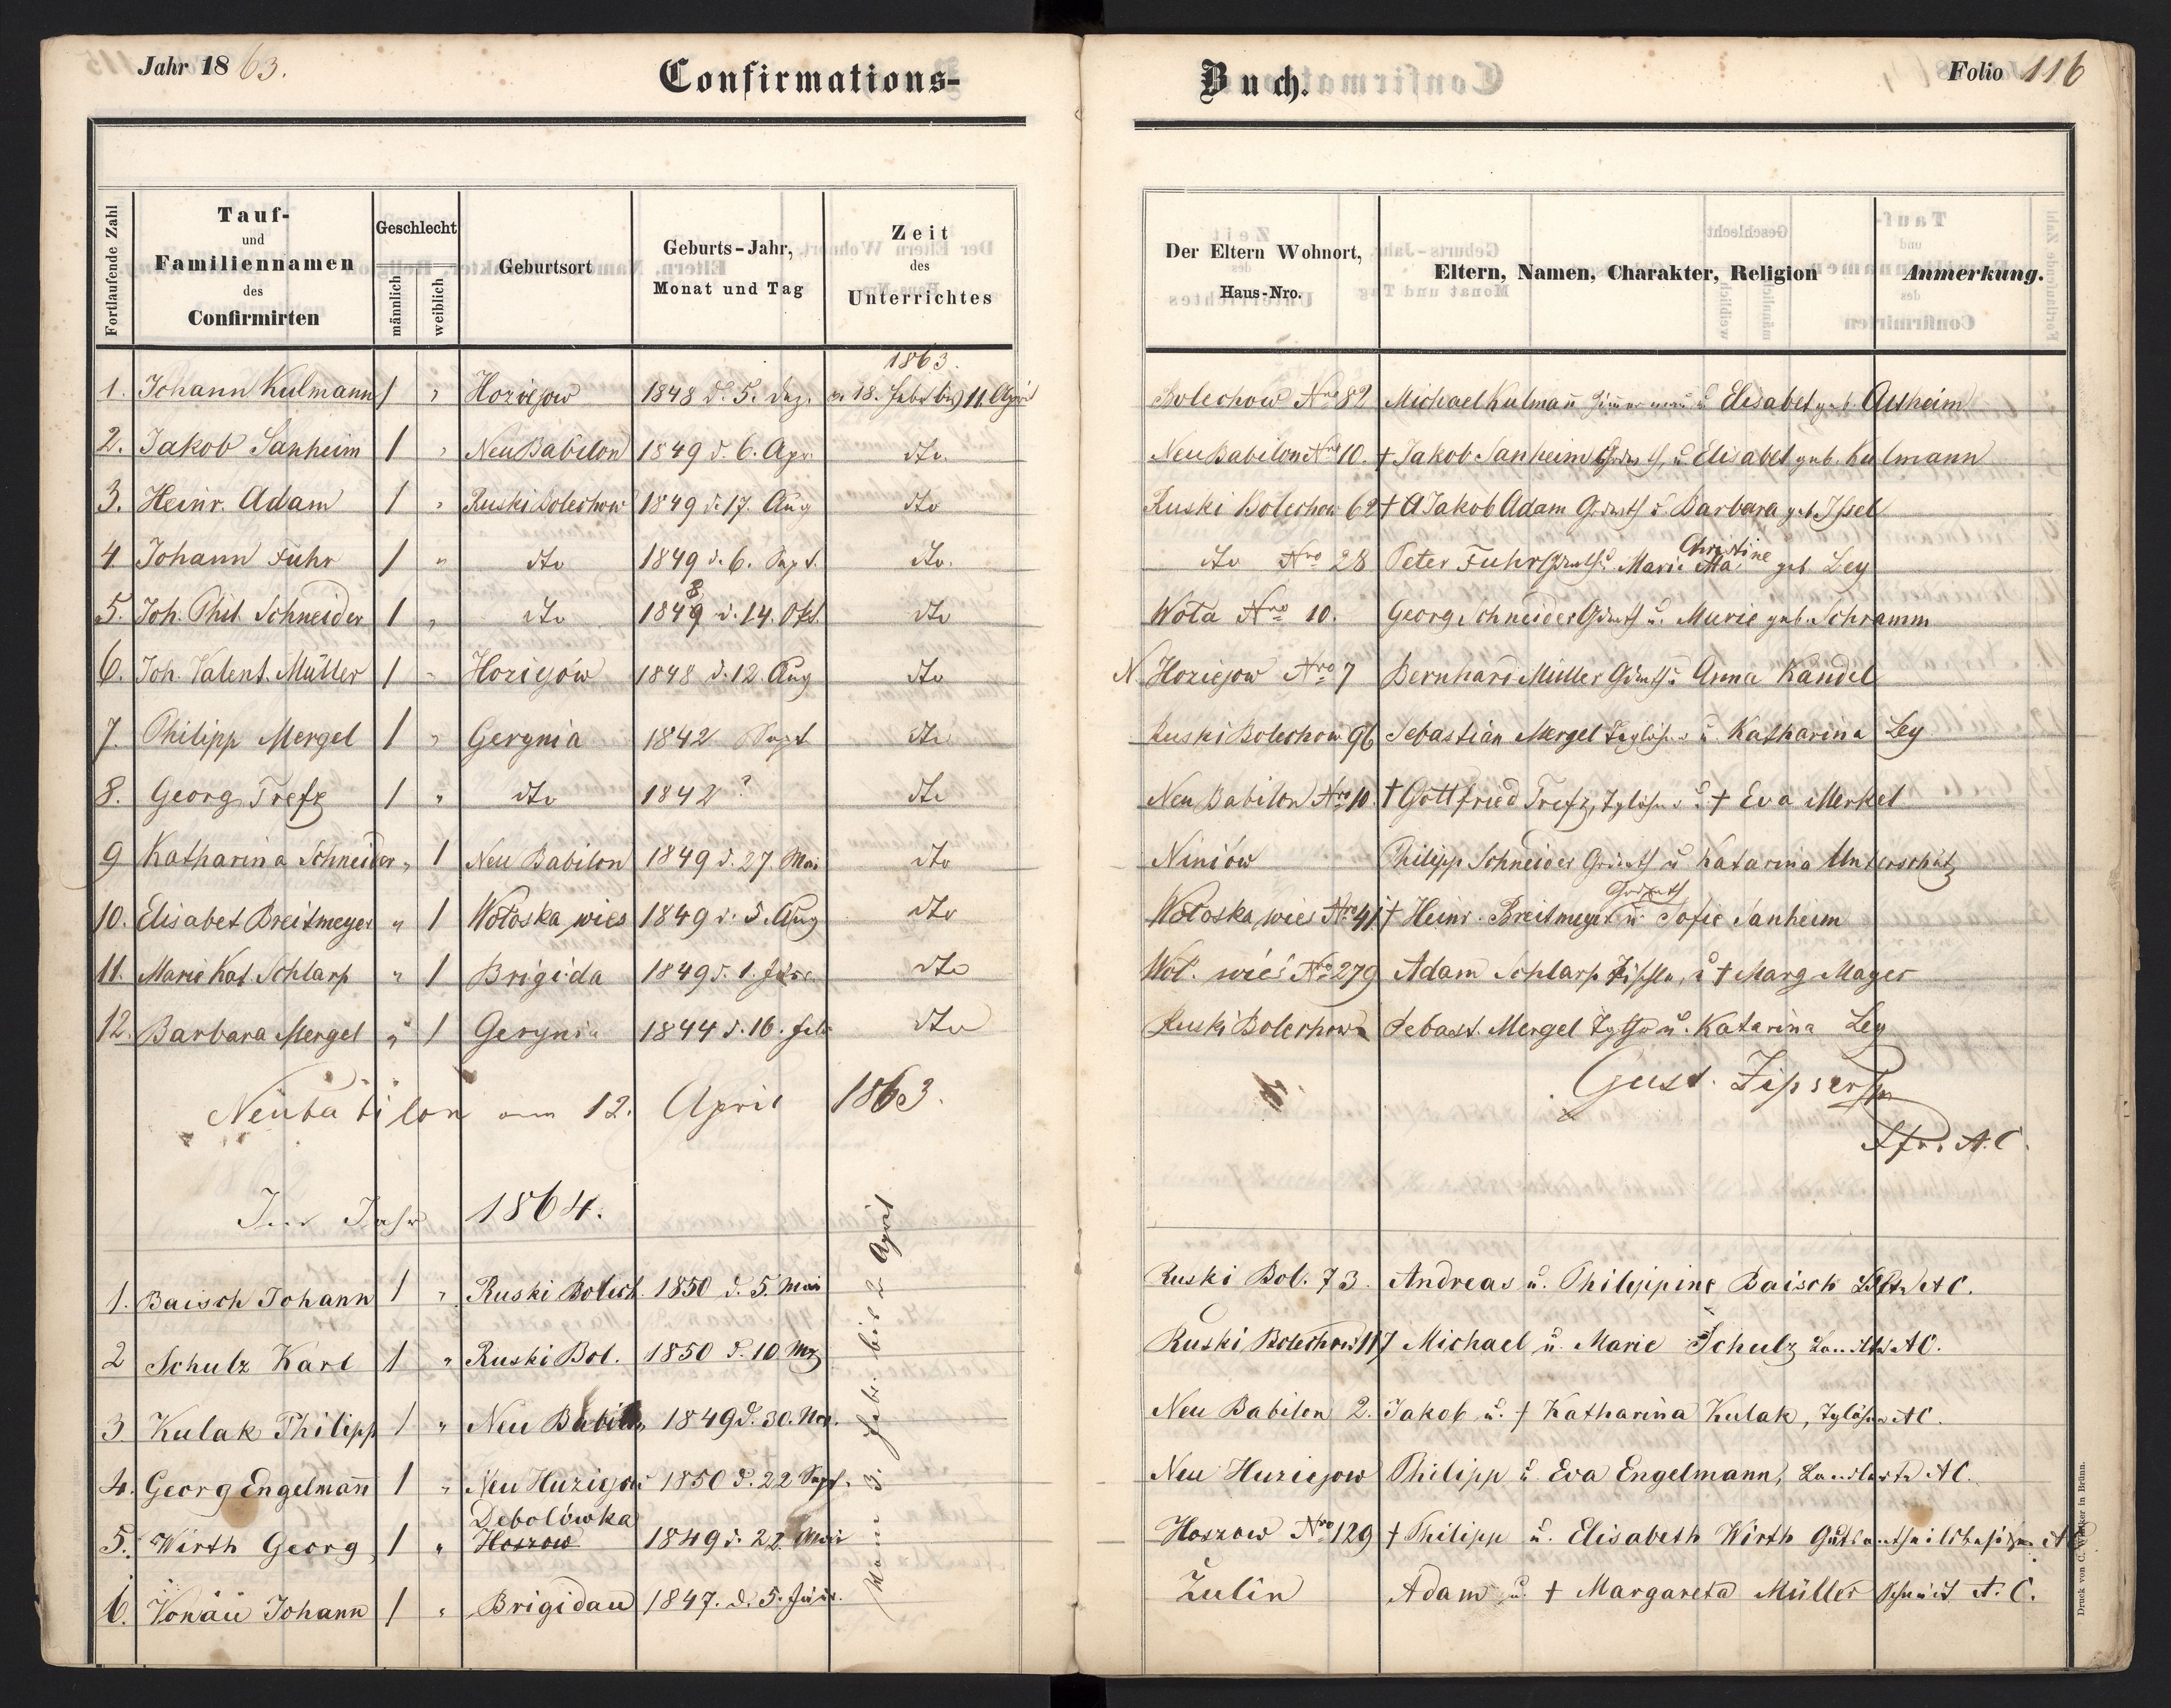 Jahr 1863.
Confirmations-
Buch.
Folio 116
Fortlaufende Zahl
Tauf-
und
Familiennamen
des
Confirmirten
Geschlecht
männlich
weiblich
Geburtsort
Geburts-Jahr,
Monat und Tag
Zeit
des
Unterrichtes
Der Eltern Wohnort,
Haus-Nro.
Eltern, Namen, Charakter, Religion
Anmerkung.
1863.
1. Johann Kulmann 1 " Horiejow 1848 d. 5. Dez. 18. Febr bis 11. April Bolechow Nro 82 Michael Kulmañ Zimmermañ u Elisabet geb. Altheim
2. Jakob Sanheim 1 " Neu Babilon 1849 d. 6. Apr. dto. Neu Babilon Nro 10. † Jakob Sanheim u. Elisabet geb. Kulmann
3. Heinr. Adam 1 " Ruski Bolechow 1849 d. 17. Aug dto Ruski Bolechow 62 † Jakob Adam u. Barbara geb. Issel
4 Johann Fuhr 1 " dto 1849 d. 6. Sept. dto. dto Nro 28 Peter Fuhr u. Marie Christine geb Ley
5. Joh. Phil. Schneider 1 " dto 1848 d. 14. Okt. dto Wola Nro 10. Georg Schneider u. Marie geb. Schramm
6. Joh. Valent. Müller 1 " Horiejów 1848 d. 12. Aug dto N. Horiejow Nro 7 Bernhard Müller u Anna Kandel
7. Philipp Mergel 1 " Gerynia 1842 Sept dto Ruski Bolechow 96 Sebastian Mergel Taglöhner u. Katharina Ley
8. Georg Trefz 1 " dto 1842 ? dto Neu Babilon Nro 10. † Gottfried Trefz, Tglöhner u. † Eva Merkel
9 Katharina Schneider " 1 Neu Babilon 1849 d. 27. Mai dto Niniów Philipp Schneider u Katarina Unterschütz
10. Elisabet Breitmeyer " 1 Wołoska wies 1849 d. 5. Aug dto Wołoska wies Nro 41. † Heinr. Breitmeyer u. Sofie Sanheim
11. Marie Kat. Schlarp " 1 Brigida 1849 d. 1. dto Wol. wieś No 279 Adam Schlarp Tischler, u † Marg Mayer
12. Barbara Mergel " 1 Gerynia 1844 d. 16. Feb dto Ruski Bolechow Sebast. Mergel u. Katarina Ley
Neubabilon am 12. April 1863.
Gust. Zipser
Pfr. A. C.
Im Jahr 1864.
Vom 3. Febr. bis 2 April
1. Baisch Johann 1 " Ruski Bolech. 1850 d. 5. Mai Ruski Bol. 73. Andreas u. Philippine Baisch A C.
2 Schulz Karl 1 " Ruski Bol. 1850 d. 10 Mz Ruski Bolechow 117 Michael u. Marie Schulz A C.
3. Kulak Philipp 1 " Neu Babilon 1849 d. 30. Nov. Neu Babilon 2. Jakob u. † Katharina Kulak, Tglöhner A C.
4. Georg Engelmañ 1 " Neu Huziejow 1850 d. 22 Sept. Neu Huziejow Philipp u. Eva Engelmann, Landwirth A C.
5. Wirth Georg 1 " Debolówka Hoszow 1849 d. 22 Mai Hoszow Nro 129 † Philipp u. Elisabeth Wirth A C
6. Konäu Johann 1 " Brigidau 1847. d. 5. Zulin Adam u. † Margareta Müller Schmied A. C.
Druck von C. Winiker in Brünn.